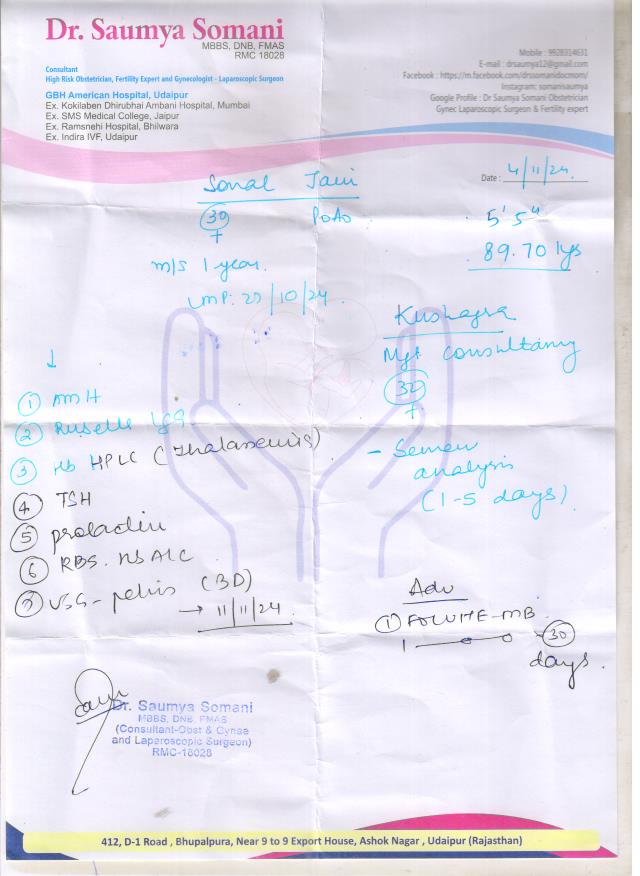 Dr. Saumya Somani
MBBS, DNB, FMAS
RMC 18028
Consultant
High Risk Obstetrician, Fertility Expert and Gynecologist - Laparoscopic Surgeon
GBH American Hospital, Udaipur
Ex. Kokilaben Dhirubhai Ambani Hospital, Mumbai
Ex. SMS Medical College, Jaipur
Ex. Ramsnehi Hospital, Bhilwara
Ex. Indira IVF, Udaipur
Mobile : 9928314631
E-mail : drsaumya12@gmail.com
Facebook : https://m.facebook.com/drssomanidocmom/
Instagram: somanisaumya
Google Profile : Dr Saumya Somani Obstetrician
Gynec Laparoscopic Surgeon & Fertility expert
Date : 4/11/24.
Sonal Jain
P0A0
F
5' 5"
89.70 kgs
m/s 1 year.
LMP: /10/24.
Kushagra
Mgt consultancy
↓
① AMH
② Rubella IgG
③ Hb HPLC (Thalassemia)
④ TSH
⑤ prolactin
⑥ RBS. HbA1C
⑦ USG - pelvis (3D)
→ 11/11/24.
- Semen
analysis
(1-5 days).
Adv
① FOLLIHE-MB
30
days.
Dr. Saumya Somani
MBBS, DNB, FMAS
(Consultant-Obst & Gynae
and Laparoscopic Surgeon)
RMC-18028
412, D-1 Road , Bhupalpura, Near 9 to 9 Export House, Ashok Nagar , Udaipur (Rajasthan)